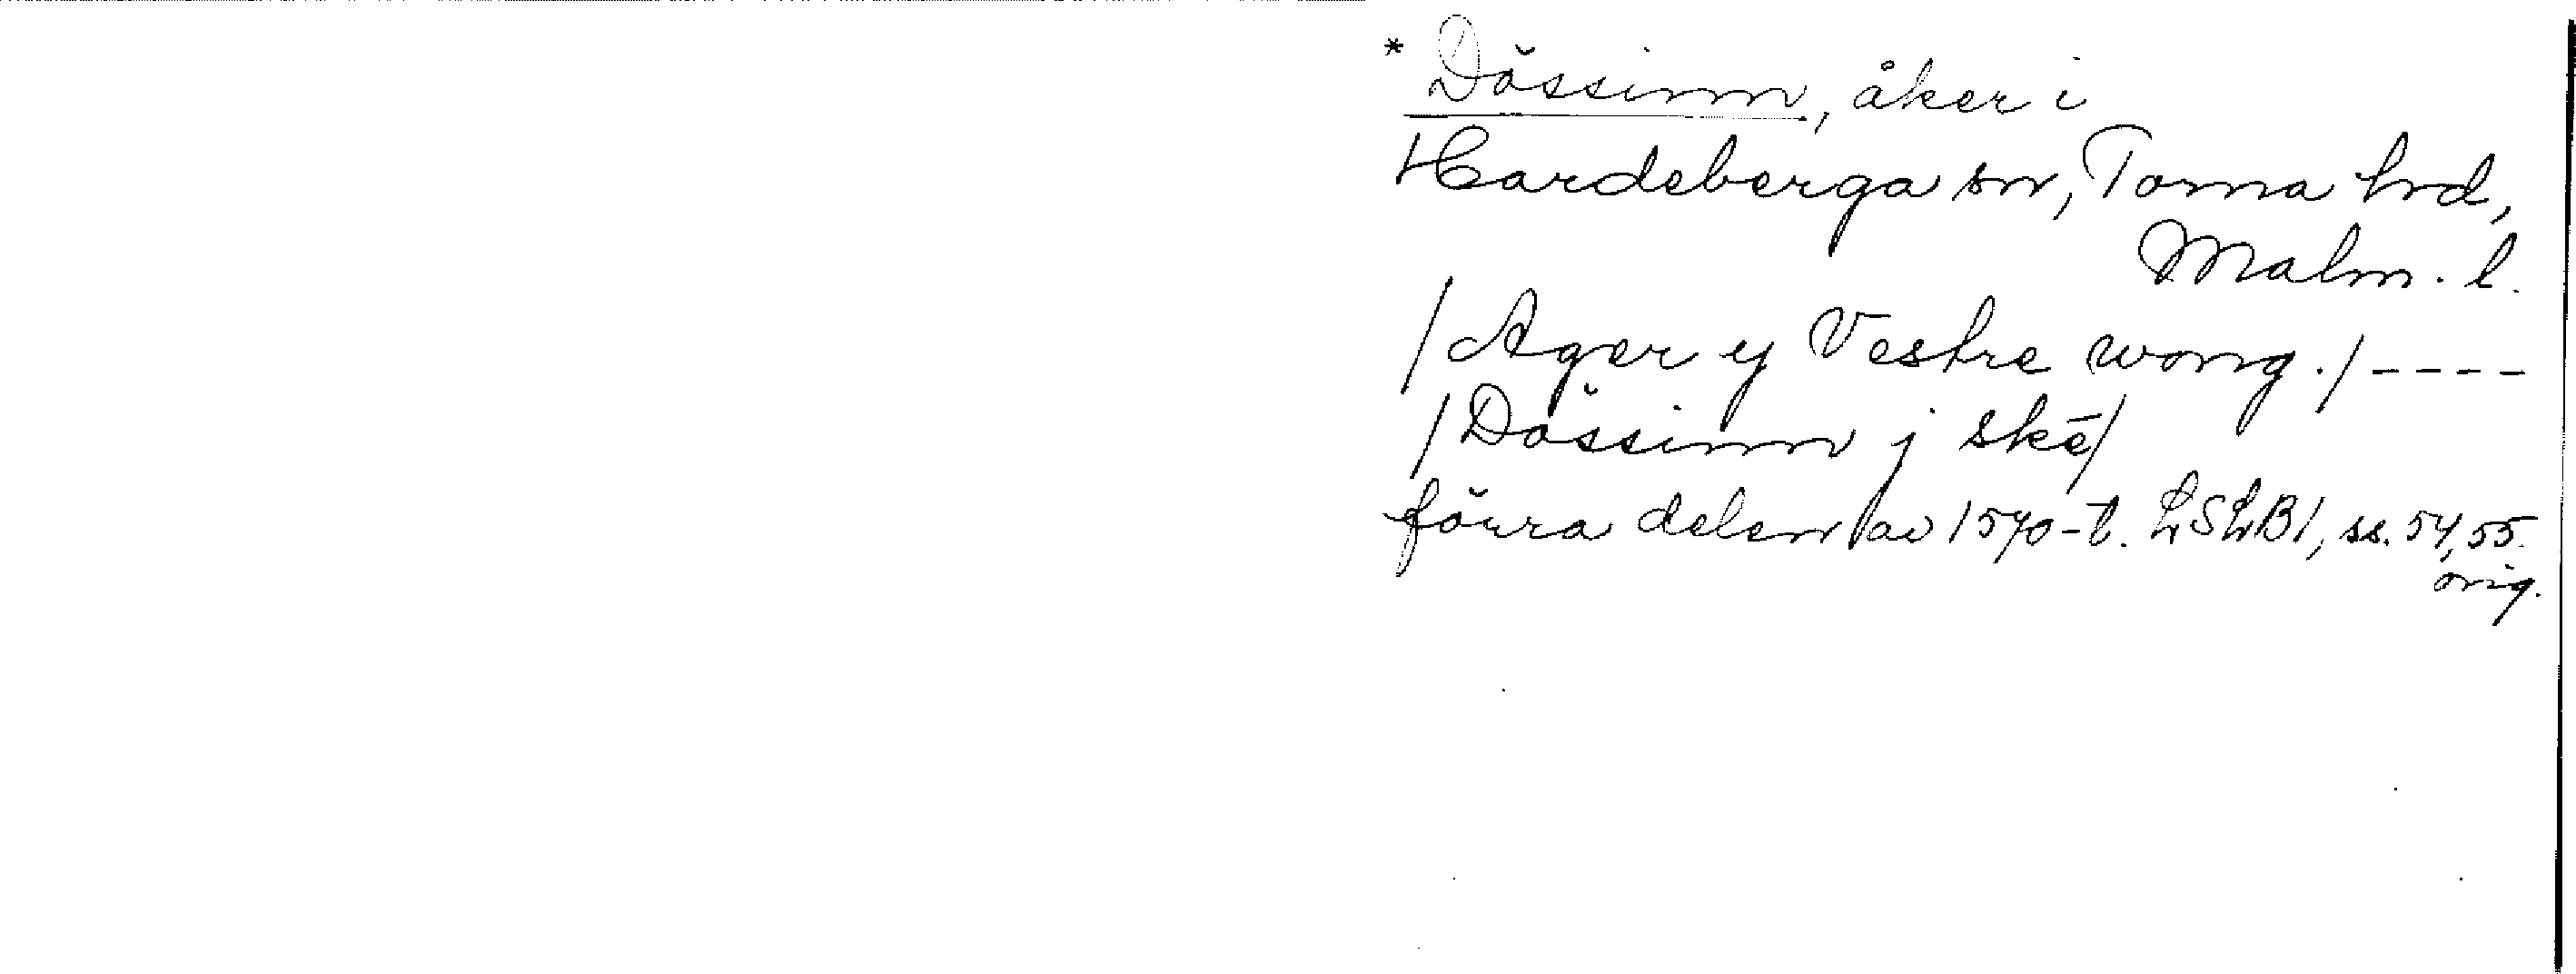 * Dössinn, åker i
Hardeberga sn, Torna hd,
Malm. l.
/Ager y Vestre wong./----
/Dössinn j skē/
förra delen av 1570-t. LSLB1, ss. 54, 55.
orig.